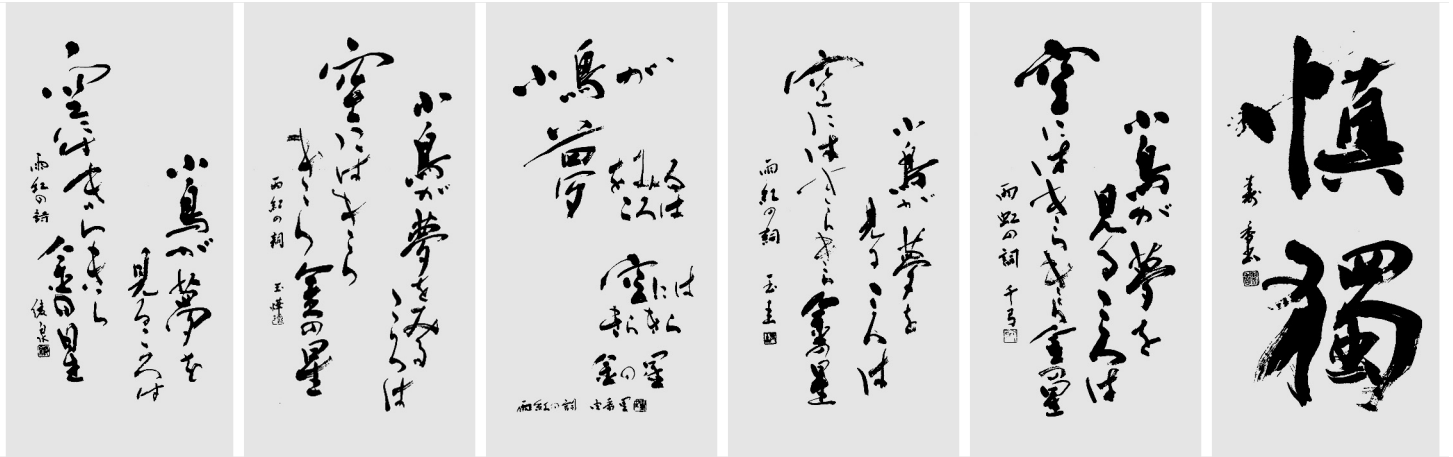 小鳥が夢を
見るころは
空にはきらきら
金の星
雨紅の詩
小鳥が夢をみるころは
空にはきら
きら金の星
雨紅の詞
小鳥が
夢を
見るは
ころ
空には
きらきら
金の星
雨紅の詞
小鳥が夢を
見るころは
空にはきらきら金の星
雨紅の詞 玉圭
小鳥が夢を
見るころは
空にはきらきら金の星
雨虹の詞 千弓
慎獨